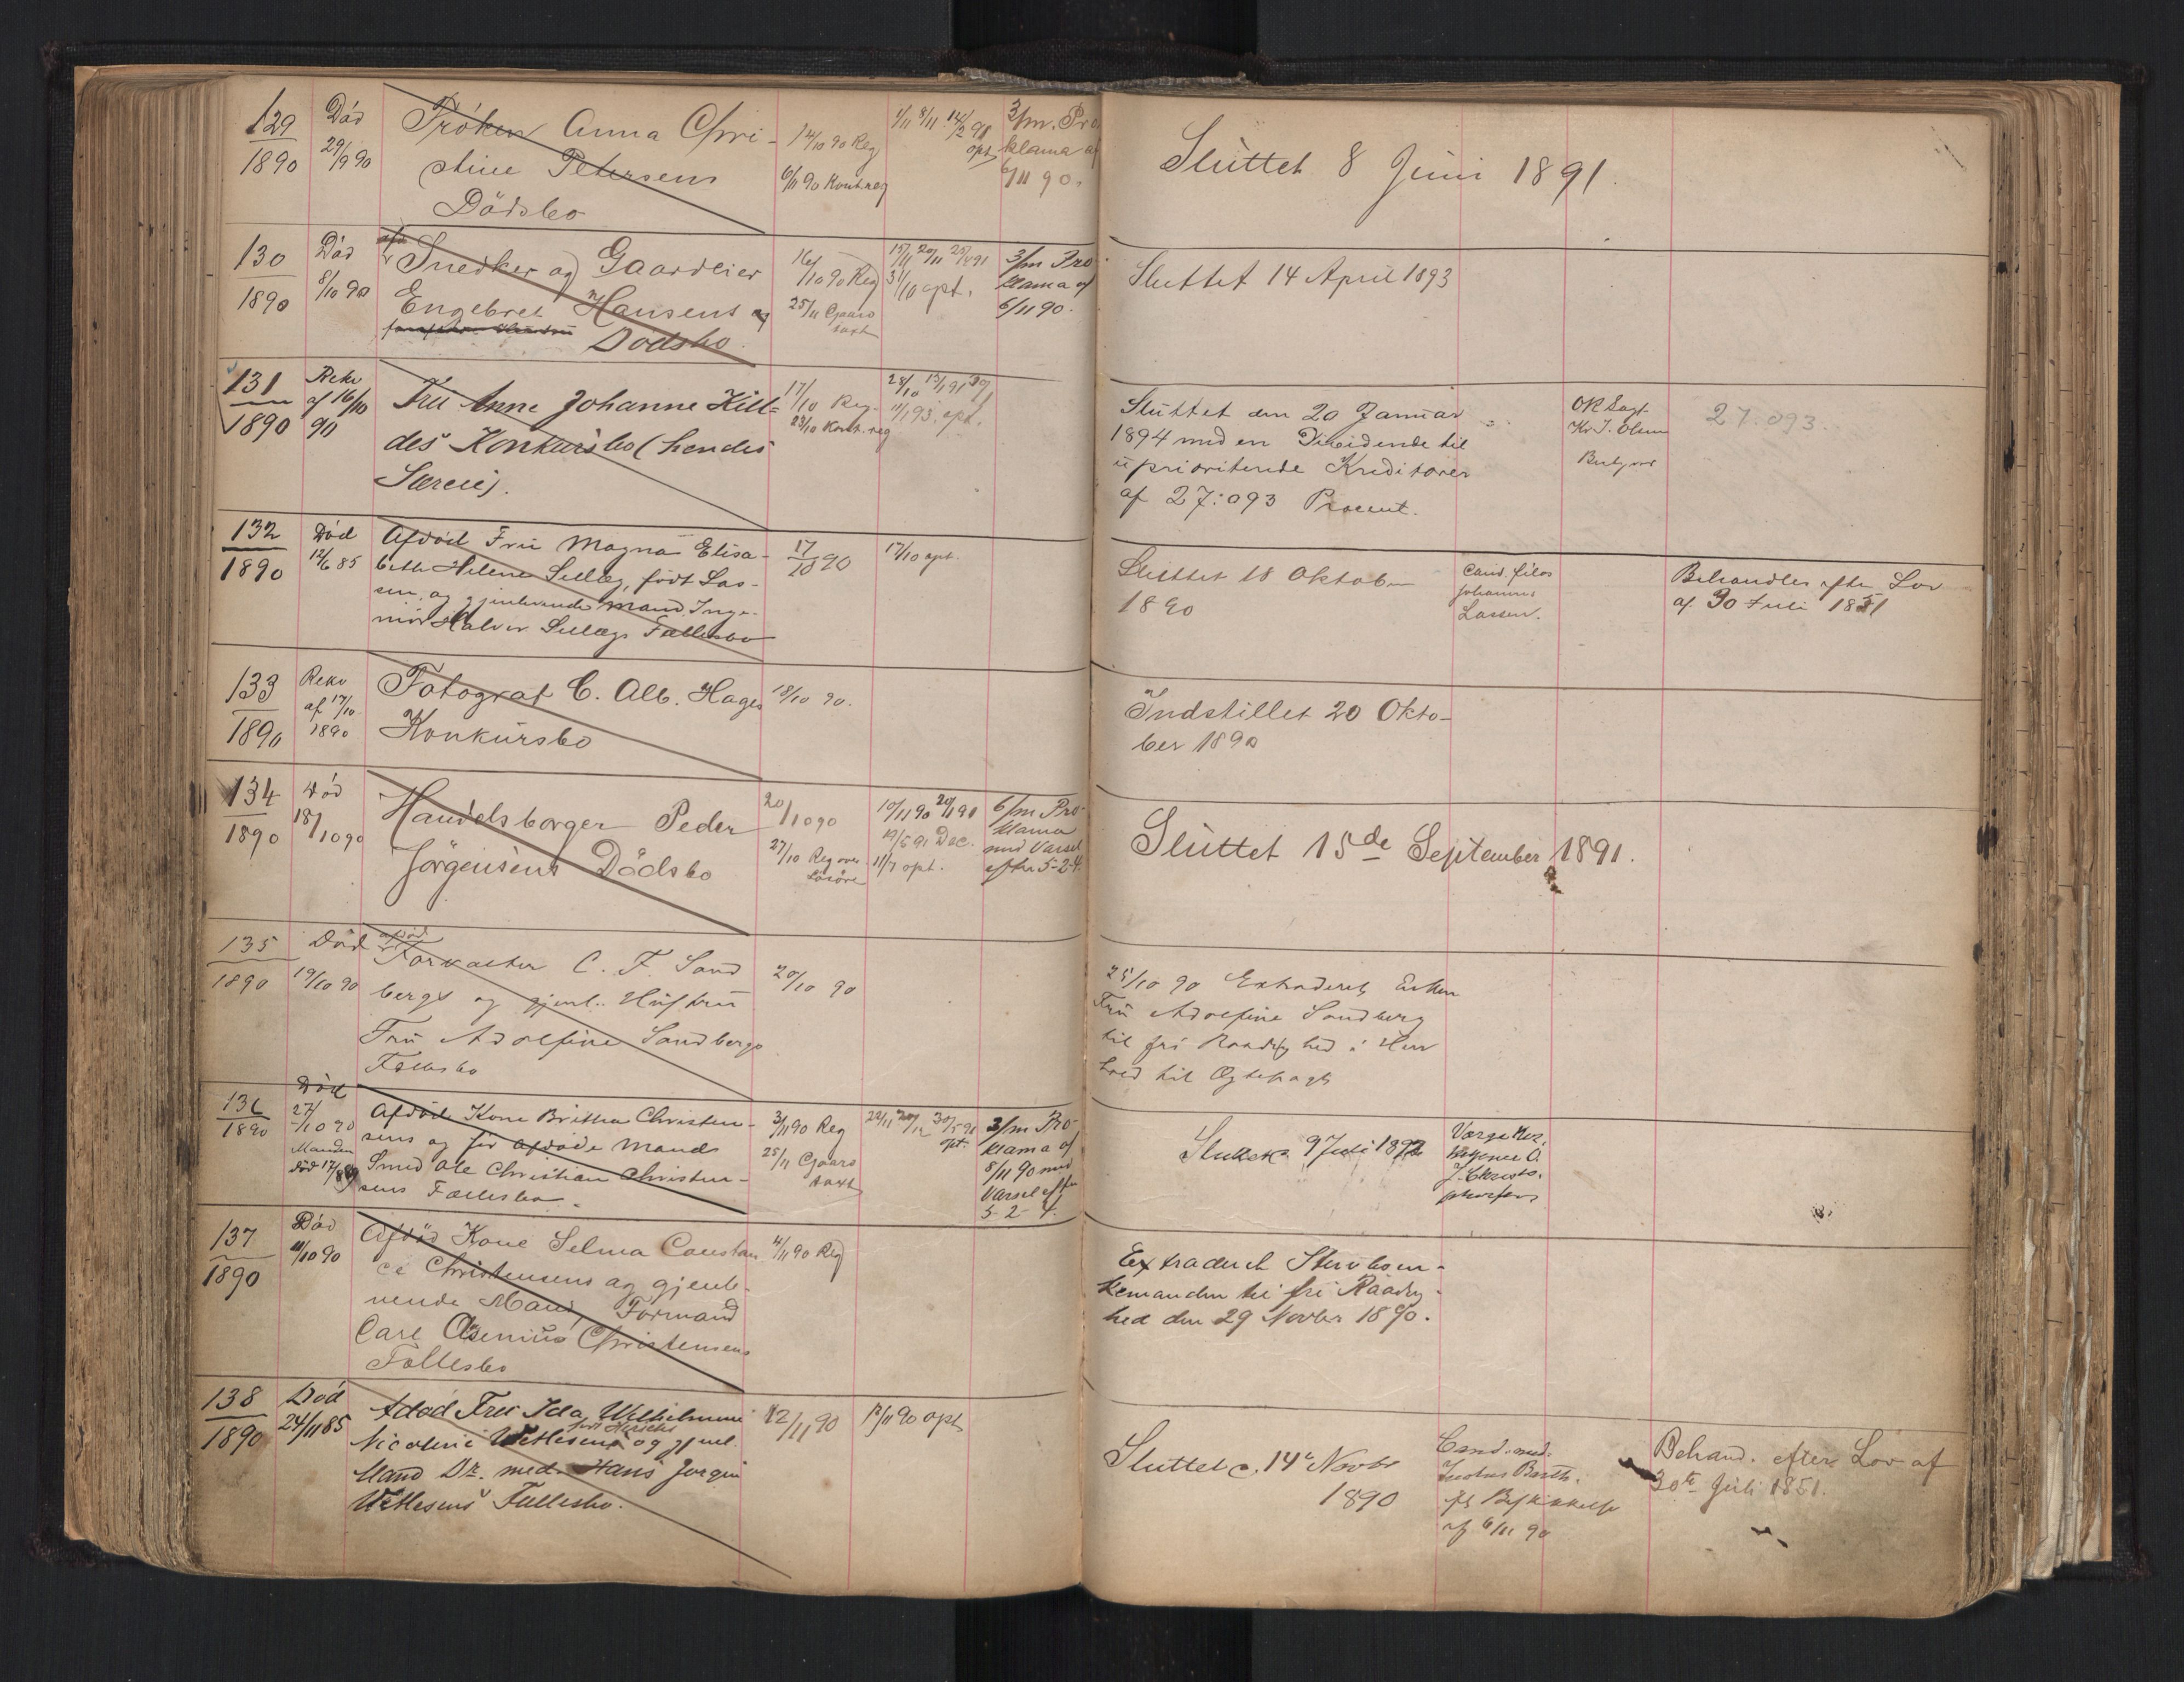 129
1890
Död
29/9 90
Fröken Anna Chri-
stine Petersens
Dödsbo
14/10 90 Reg
6/11 90 Kont. reg
1/11 8/11 14/2 91
opt
3/m. Pro
klama af
6/11 90.
Sluttet 8 Juni 1891.
130
1890
Död
8/10 90
Snedker og Gaardeier
Engebret Hansens
Dödsbo.
16/10 90 Reg
25/11 Gaards
taxt
31/10 opt.
3/m Pro
klama af
6/11 90.
Sluttet 14 April 1893
131
1890
Rekv
af 16/10
90
Fru Anne Johanne Kill-
des Konkursbo (hendes
Særeie).
17/10 Reg.
23/10 Kont. reg
28/10
opt.
Sluttet den 20 Januar
1894 med en Dividende til
uprioriterede Kreditorer
af 27:093 Procent.
OR Sagf.
Kr. J. Olsen
27.093
132
1890
Död
12/6 85
Afdöd Fru Magna Elisa-
beth Helene Sellæg, född Las-
sen, og gjenlevende Mand Inge-
niör Halvor Sellægs Fællesbo
17/10 90
17/10 opt.
Sluttet 18 Oktober
1890
Cand. filos
Johannes
Lassen.
Behandles efter Lov
af 30 Juli 1851
133
1890
Rekv
af 17/10
1890
Fotograf C. Alb. Hages
Konkursbo
18/10 90.
Indstillet 20 Okto-
ber 1890
134
1890
Död
18/10 90
Handelsborger Peder
Jörgensens Dödsbo
20/10 90
27/10 Reg over
Lösöre
10/11 90
19/5 91 Dec.
11/7 opt.
6/m Pro-
klama
med Varsel
efter 5-2-4.
Sluttet 15de September 1891.
135
1890
Död
19/10 90
afdöd
Forvalter C. F. Sand
bergs og gjenl. Hustru
Fru Adolfine Sandbergs
Fællesbo
20/10 90
25/10 90 Extraderet Enken
Fru Adolfine Sandberg
til fri Raadighed i Hen
hold til Ægtepagt
136
1890
Död
27/10 90
Manden
död
Afdöde Kone Brithea Christen-
sens og för afdöde Mands
Smed Ole Christian Christen-
sens Fællesbo.
3/11 90 Reg
25/11 Gaards
taxt
opt.
3/m Pro-
klama af
8/11 90 med
Varsel efter
5-2-4.
Sluttet 9 Juli 1892
137
1890
Död
11/10 90
Afdöd Kone Selma Constan
ce Christensens og gjenle-
vende Mand, Formand
Carl Christensens
Fællesbo
4/11 90 Reg
Extraderet Stervboen-
kemanden til fri Raadig-
hed den 29 Novbr 1890.
138
1890
Död
24/11 85
Afdöd Fru Ida Wilhelmine
Nicoline Wetlesens og gjenl.
Mand Dr. med. Hans Jörgen
Wetlesens Fællesbo.
12/11 90
12/11 90 opt
Sluttet 14de Novbr
1890
Cand. med.
Justus Barth.
af 6/11 90
Behand. efter Lov af
30te Juli 1851.